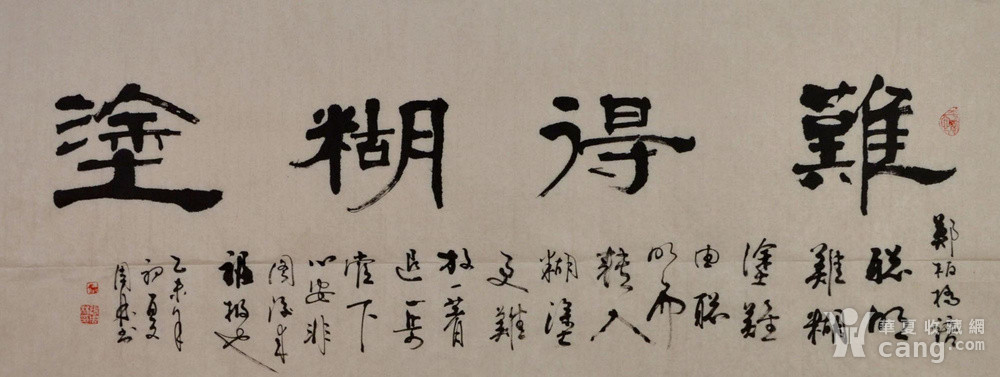 難得糊塗
鄭板橋語
聰明
難糊
塗難
由聰
明而
轉入
糊塗
更難
放一著
退一步
當下
心安非
圖後來
福報也
乙未年
初夏
周 書
華夏收藏網
cang.com